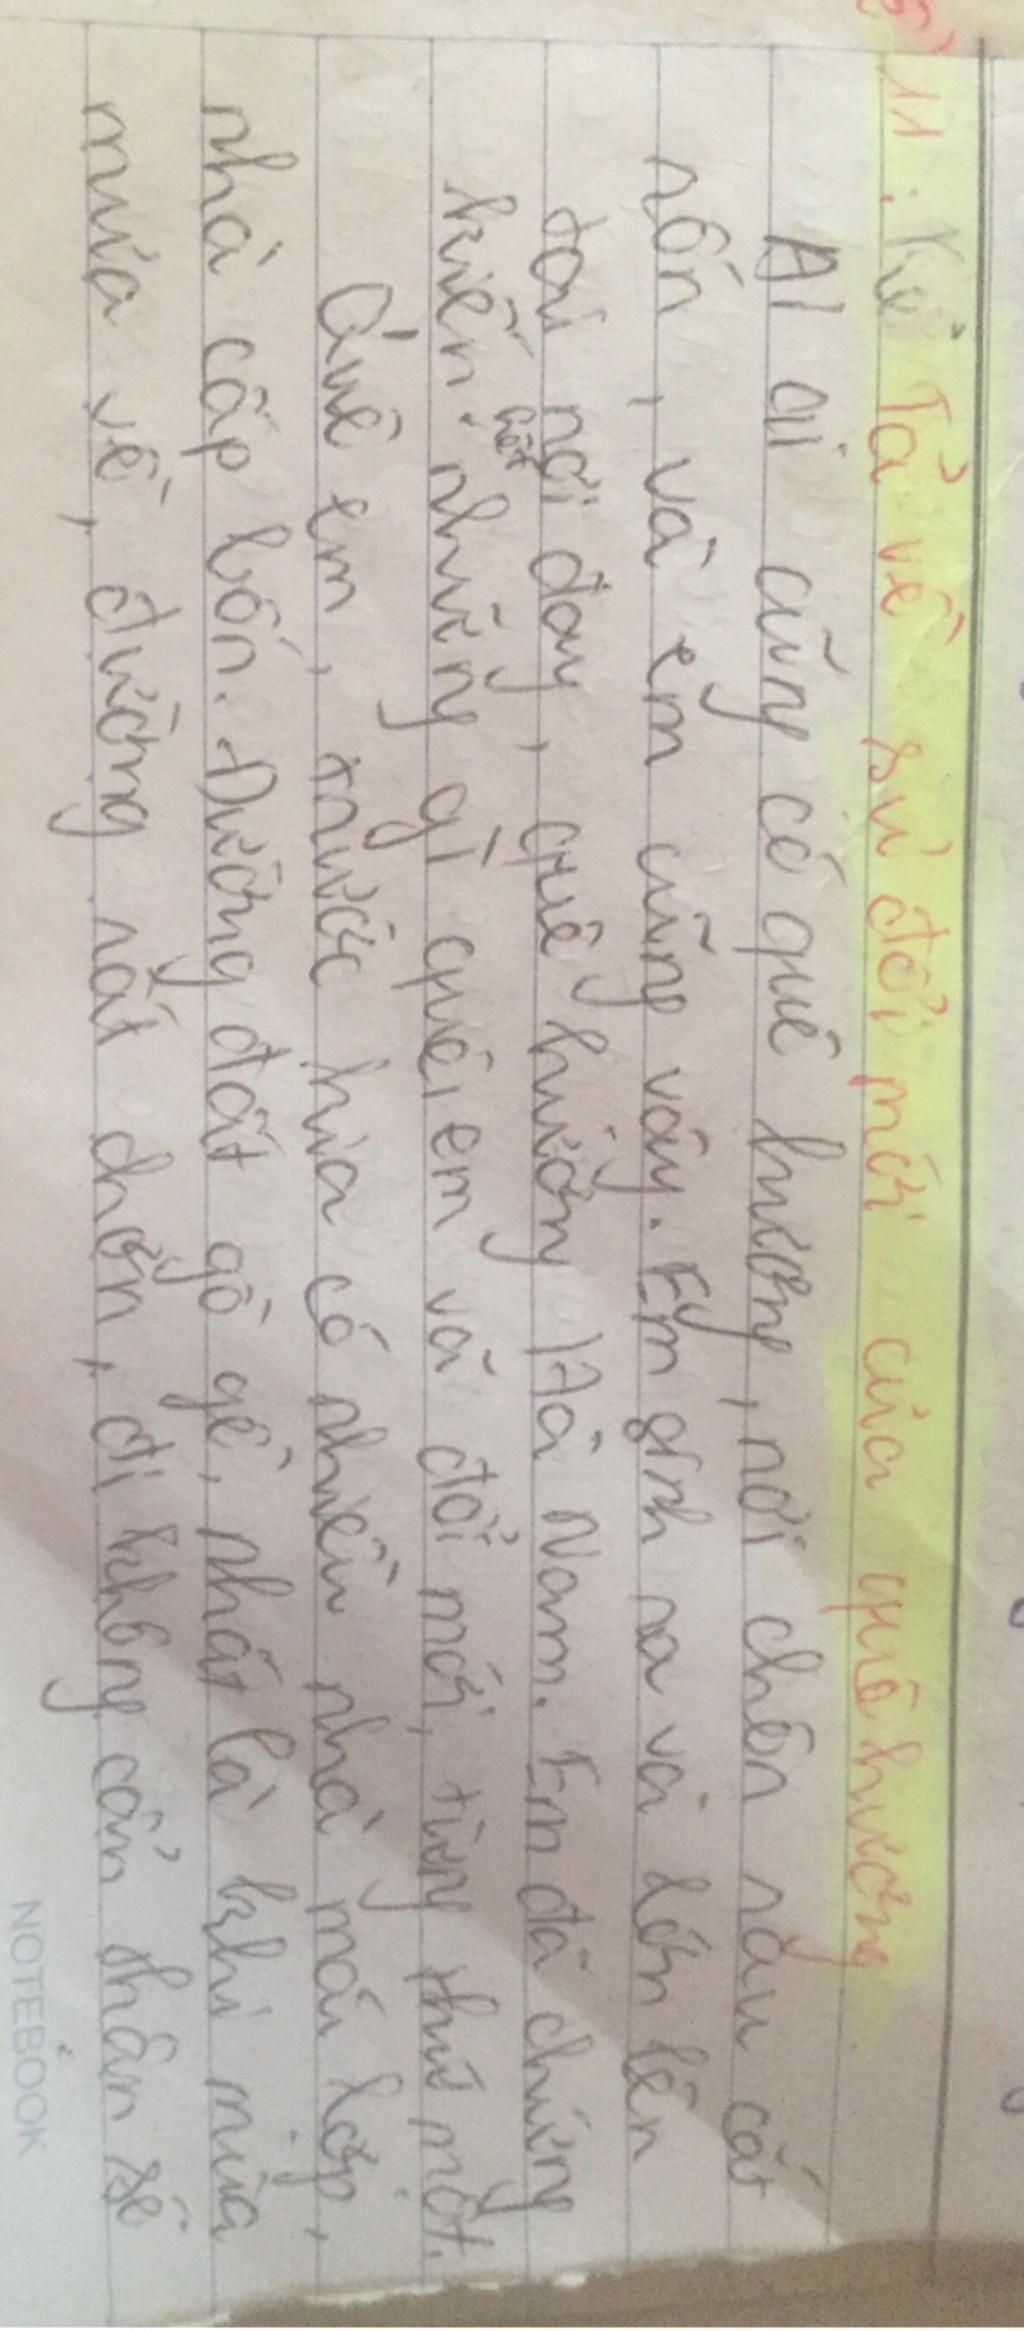 11. Kể Tả về sự đổi mới của quê hương
Ai ai cũng có quê hương, nơi chôn rau cắt
rốn, và em cũng vậy. Em sinh ra và lớn lên
tại nơi đây, quê hương Hà Nam. Em đã chứng
kiến hết những gì quê em và đổi mới, từng thứ một.
Quê em, trước kia có nhiều nhà mái lợp,
nhà cấp bốn. Đường đất gồ gề, nhất là khi mùa
mưa về, đường rất trơn, đi không cẩn thận sẽ
NOTEBOOK